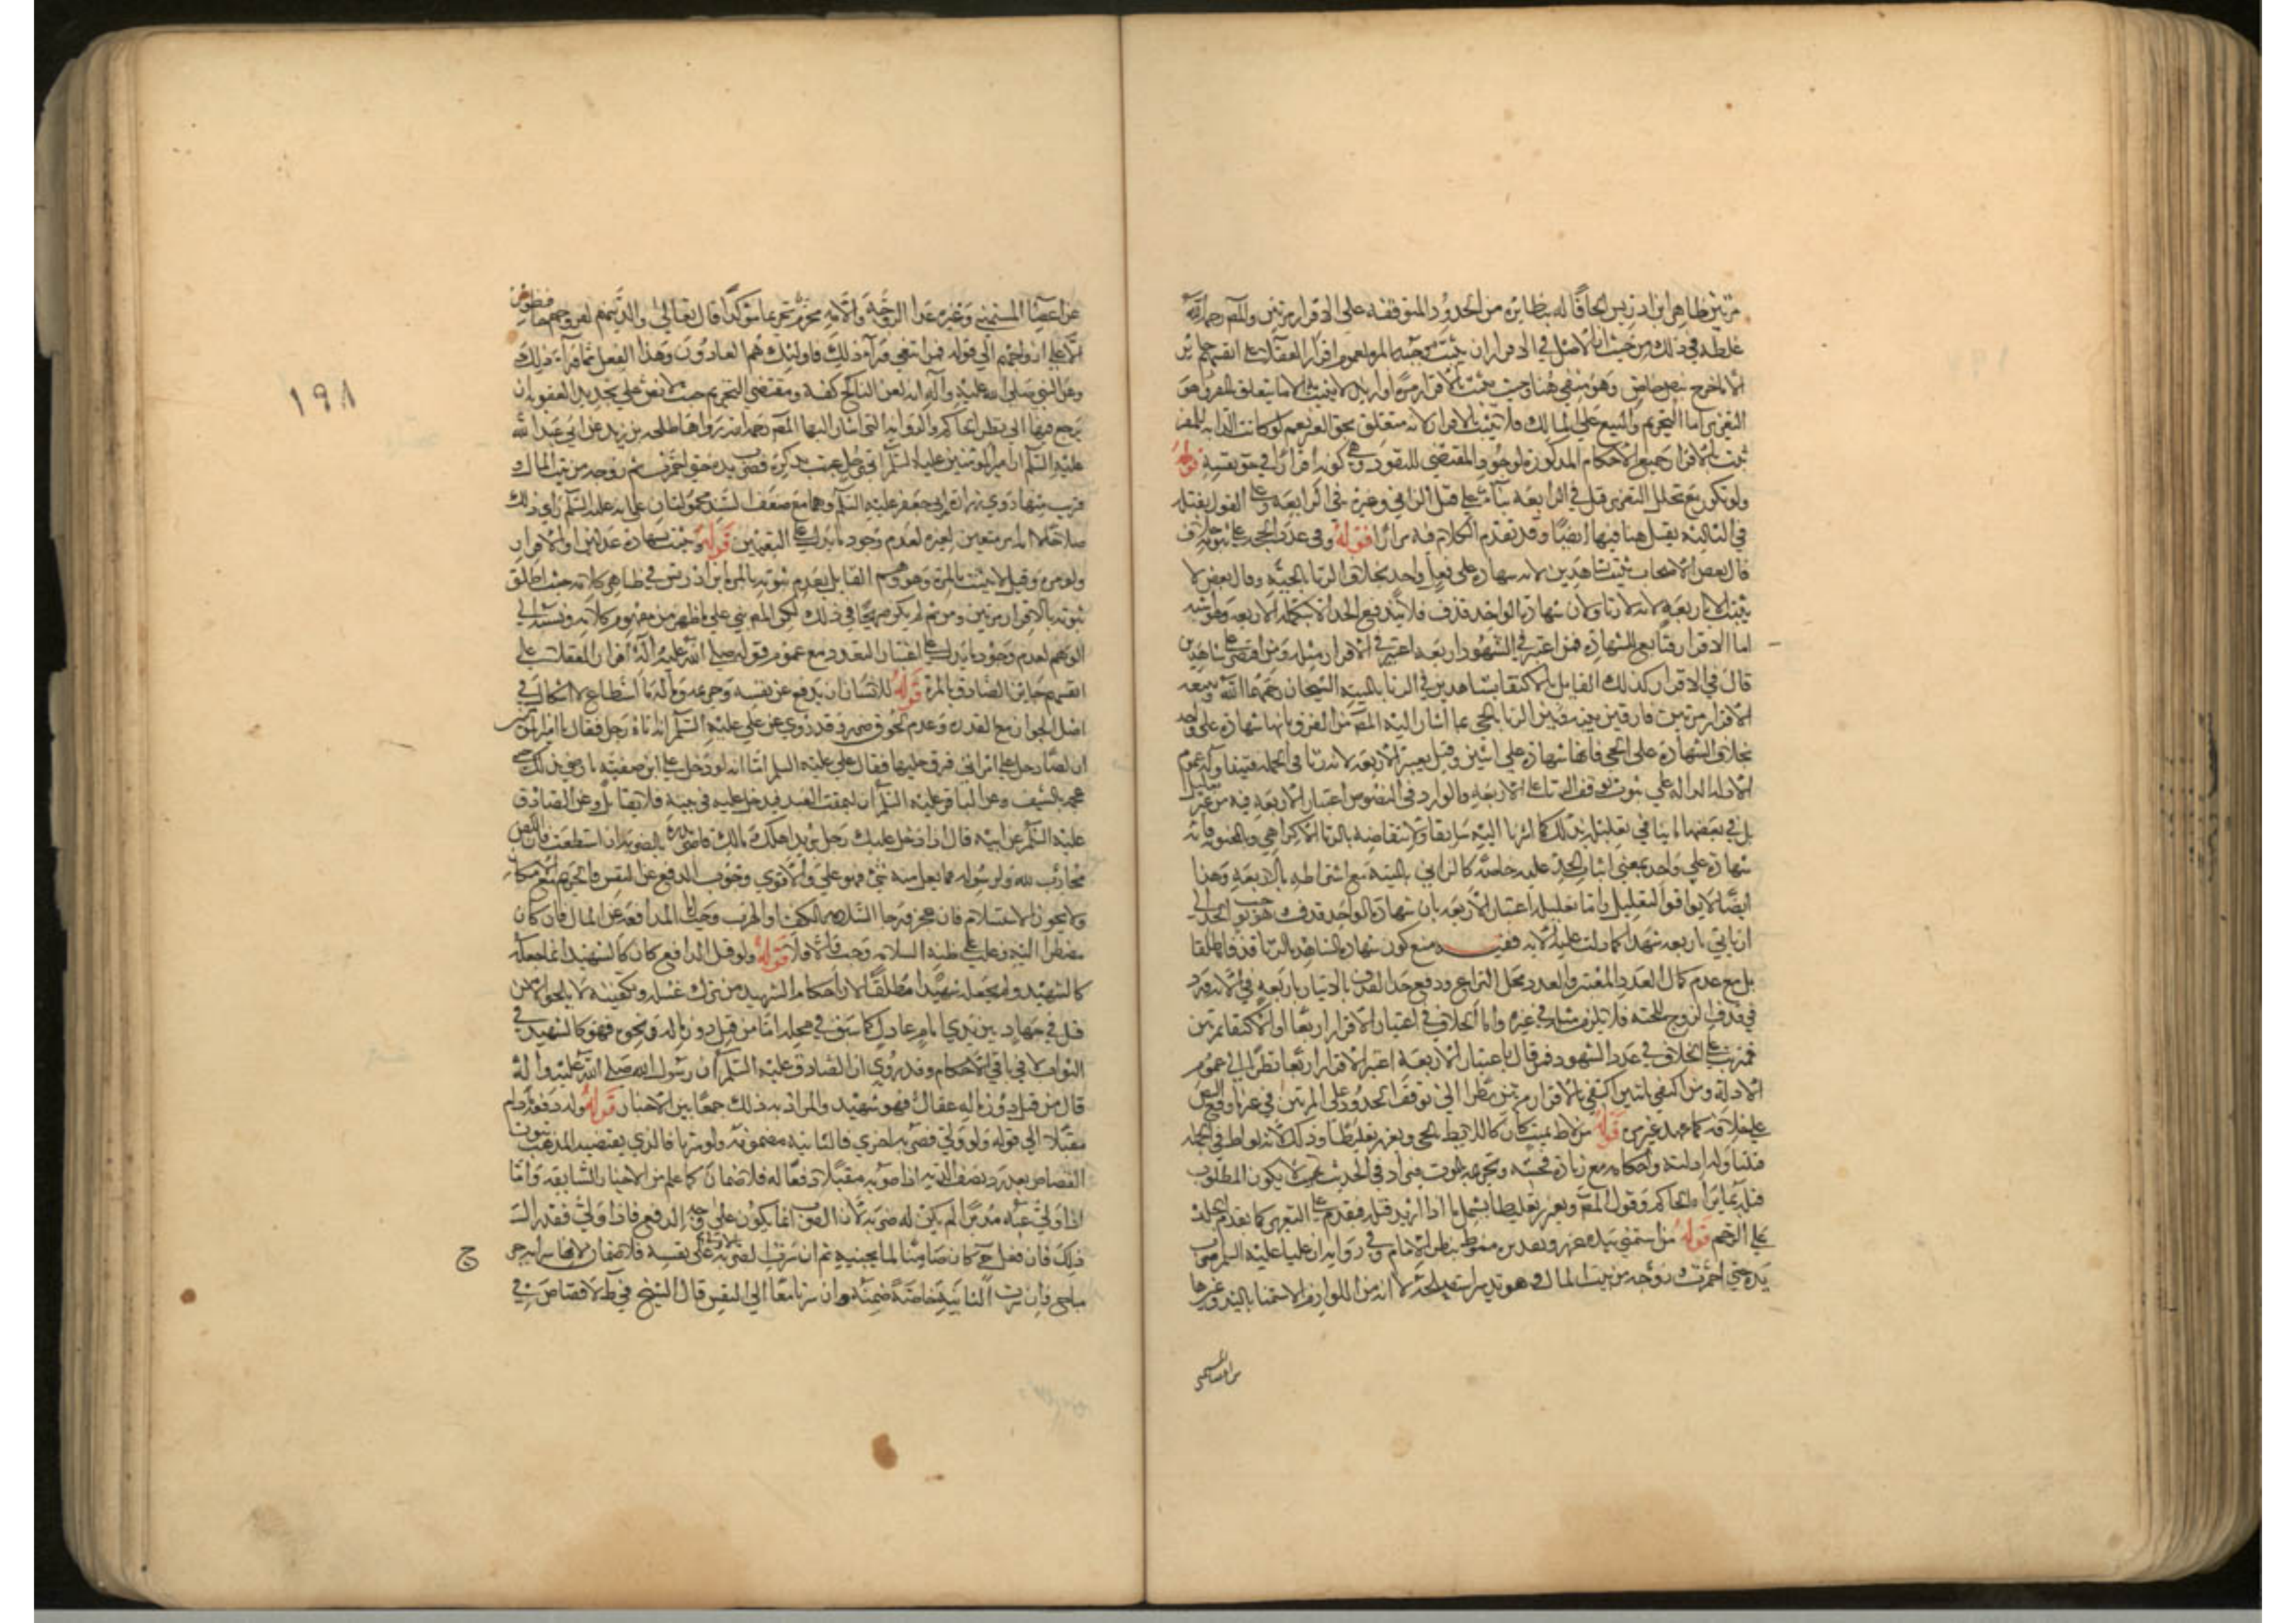 مرتين ظاهر ابن ادريس الحاقا له بنظايره من الحدود المتوقفه على الاقرار مرتين والمصر رحمه الله
غلطه في ذلك من حيث ان الاصل في الاقرار ان يثبت موجبه بالمره لعموم اقرار العقلا على انفسهم جايز
الا ما اخرج بنص خاص وهو منفي هنا وحيث يثبت بالاقرار مره او ازيد لا يثبت الا ما يتعلق بالمقر وهو
التعزير اما التحريم والبيع على المالك فلا يثبت بالاقرار لانه متعلق بحق الغير نعم لو كانت الدابه للمقر
ثبت بالاقرار جميع الاحكام المذكوره لوجود المقتضى للنفوذ وهي كونه اقرارا في حق نفسه قوله
ولو تكرر مع تخلل التعزير قتل في الرابعه بنآء على قتل الزاني وغيره في الرابعه وعلى القول بقتله
في الثالثه يقتل هنا فيها ايضا وقد تقدم الكلام فيه مرارا قوله وفي عدد الحجه على ثبوته خلاف
قال بعض الاصحاب يثبت بشاهدين لانه شهاده على فعل واحد بخلاف الزنا بالحيه وقال بعض لا
يثبت الا باربعه لانه زنا ولان شهاده الواحد قذف فلا يندفع الحد الا بتكمله الاربعه وهو اشبه
اما الاقرار فتابع للشهاده فمن اعتبر في الشهود اربعه اعتبر في الاقرار مثله ومن اقتصر على شاهدين
قال في الاقرار كذلك القايل بالاكتفا بشاهدين في الزنا بالميته الشيخان رحمهما الله وتبعه
الاقرار مرتين فارقين بينه وبين الزنا بالحي بما اشار اليه المصر من الفرق بانها شهاده على واحد
بخلاف الشهاده على الحي فانها شهاده على اثنين وقيل يعتبر الاربعه لانه زنا في الجمله فيتناوله عموم
الادله الداله على توقف ثبوت الزنا على الاربعه والوارد في النصوص اعتبار الاربعه فيه من غير تعليل
بل في بعضها ما ينافي تعليله بذلك كما اشرنا اليه سابقا ولانتقاضه بالزنا الاكراهي وبالمجنونه فانه
شهاده على واحد بمعنى اثبات الحد عليه خاصه كالزاني بالميته مع اشتراطه بالاربعه وهذا
ايضا لا يوافق التعليل واما تعليله اعتبار الاربعه بان شهاده الواحد قذف يوجب الحد الى
ان ياتي باربعه شهدا كما دلت عليه الايه ففيه منع كون شهاده الشاهد بالزنا قذفا مطلقا
بل مع عدم كمال العدد المعتبر والعدد محل النزاع ودفع حد القذف بالاتيان باربعه في الايه ورد
في قذف الزوج للمحصنه فلا يلزم مثله في غيره واما الخلاف في اعتبار الاقرار اربعا او الاكتفا بمرتين
فمترتب على الخلاف في عدد الشهود فمن قال باعتبار الاربعه اعتبر الاقرار اربعا نظرا الى عموم
الادله ومن اكتفى باثنين اكتفى بالاقرار مرتين نظرا الى توقف الحدود على المرتين في غير ما وقع النص
على خلافه كما عهد غير مره قوله من لاط بميت كان كاللايط بالحي ويعزر تغليظا وذلك لانه لواط في الجمله
فتناوله ادلته واحكامه مع زياده فحشه وتحريمه بالموت فيزاد في الحديث بحيث لا يكون المطلوب
قتله بما يراه الحاكم وقول المصر ويعزر تغليظا يشمل ما اذا اريد قتله فيقدم على التعزير كما تقدم الجلد
على الرجم قوله من استمنى بيده عزر وتقديره منوط بنظر الامام وفي روايه ان عليا عليه السلم ضرب
يده حتى احمرت وزوجه من بيت المال وهو تدبير استصلحه لا انه من اللوازم الاستمنا باليد وغيرها
من اعضا المستمنى
١٩٨
من اعضا المستمني وغيره عدا الزوجه والامه محرم تحريما مؤكدا قال تعالى والذين هم لفروجهم حافظون
الا على ازواجهم الى قوله فمن ابتغى ورآء ذلك فاولئك هم العادون وهذا الفعل مما ورآء ذلك
وعن النبي صلى الله عليه وآله انه لعن الناكح كفه ومقتضى التحريم حيث لا نص على تحديد العقوبه ان
يرجع فيها الى نظر الحاكم والروايه التي اشار اليها المصر رحمه الله رواها طلحه بن زيد عن ابي عبد الله
عليه السلم ان امير المؤمنين عليه السلم اتي برجل عبث بذكره فضرب يده حتى احمرت ثم زوجه من بيت المال و
قريب منها روى زراره عن ابي جعفر عليه السلم وهما مع ضعف السند محمولتان على انه عليه السلم راى ذلك
صلاحا لا انه متعين لغيره لعدم وجود ما يدل على التعيين قوله ويثبت بشهاده عدلين او الاقرار
ولو مره وقيل لا يثبت بالمره وهو وهم القايل بعدم ثبوته بالمره ابن ادريس في ظاهر كلامه حيث اطلق
ثبوته بالاقرار مرتين ومن ثم لم يكن صريحا في ذلك لكن المصر بنى على ما ظهر من مفهوم كلامه ونسبه الى
الوهم لعدم وجود ما يدل على اعتبار التعدد مع عموم قوله صلى الله عليه وآله اقرار العقلا على
انفسهم جايز الصادق بالمره قوله للانسان ان يدفع عن نفسه وحريمه وماله ما استطاع لا اشكال في
اصل الجواز مع القدره وعدم لحوق ضرر وقد روي عن علي عليه السلم انه اتاه رجل فقال يا امير المؤمنين
ان لصا دخل على امراتي فسرق حليها فقال علي عليه السلم اما انه لو دخل على ابن صفيه ما رضي بذلك حتى
عمه بالسيف وعن الباقر عليه السلم ان الله يمقت العبد يدخل عليه في بيته فلا يقاتل وعن الصادق
عليه السلم عن ابيه قال اذا دخل عليك رجل يريد اهلك ومالك فابدره بالضربه ان استطعت فان اللص
محارب لله ولرسوله فما تبعك منه شئ فهو علي والاقوى وجوب الدفع عن النفس والحريم مع الامكان
ولا يجوز الاستسلام فان عجز ورجا السلامه بالكف او الهرب وجب اما المدافعه عن المال فان كان
مضطرا اليه وغلب على ظنه السلامه وجب والا فلا قوله ولو قتل الدافع كان كالشهيد انما جعله
كالشهيد ولم يجعله شهيدا مطلقا لان احكام الشهيد من ترك غسله وتكفينه لا يلحق الا من
قتل في جهاد بين يدي امام عادل كما سبق في محله اما من قتل دون ماله ونحوه فهو كالشهيد في
الثواب لا في باقي الاحكام وقد روي ان الصادق عليه السلم ان رسول الله صلى الله عليه وآله
قال من قتل دون ماله عقال فهو شهيد والمراد به ذلك جمعا بين الاخبار قوله وله دفعه ما دام
مقبلا الى قوله ولو ولى فضربه اخرى فالثانيه مضمونه ولو سرتا فالذي يقتضيه المذهب ثبوت
القصاص بعد رد نصف الديه اذا ضربه مقبلا دفعا له فلا ضمان كما علم من الاخبار السابقه واما
اذا ولى عنه مدبرا لم يكن له ضربه لان الضرب انما يكون على وجه الدفع فاذا ولى فقد زال
ذلك فان فعل ح كان ضامنا لما يجنيه ثم ان سرت الضربه الاولى على نفسه فلا ضمان لانها سرايه جرح
مباح فان سرت الثانيه خاصه ضمنه وان سرتا معا الى النفس قال الشيخ في ط لا قصاص في